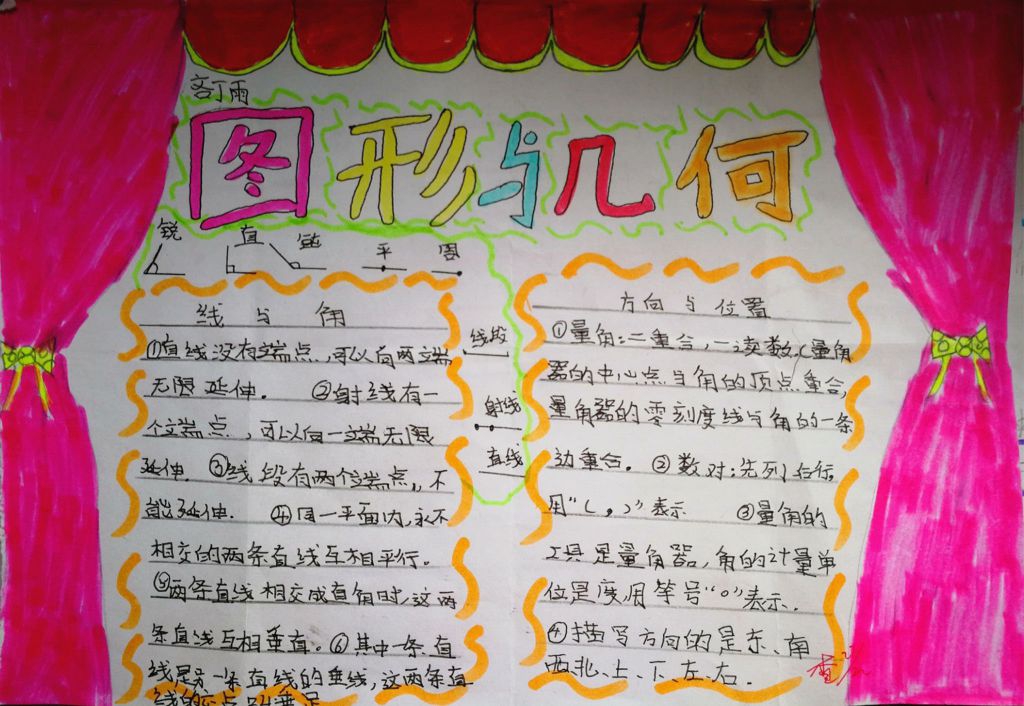 丁雨
图形与几何
锐 直 钝 平 周
线与角
①直线没有端点，可以向两端
无限延伸。 ②射线有一
个端点，可以向一端无限
延伸. ③线段有两个端点，不
能延伸. ④同一平面内，永不
相交的两条直线互相平行。
⑤两条直线相交成直角时，这两
条直线互相垂直。⑥其中一条直
线是另一条直线的垂线，这两条直
线的 点叫垂足
线段
射线
直线
方向与位置
①量角：二重合，一读数.(量角
器的中心点与角的顶点重合，
量角器的零刻度线与角的一条
边重合。 ②数对：先列后行，
用“( , )”表示 ③量角的
工具是量角器，角的计量单
位是度，用符号“°”表示.
④描写方向的是东、南
西、北、上、下、左、右.